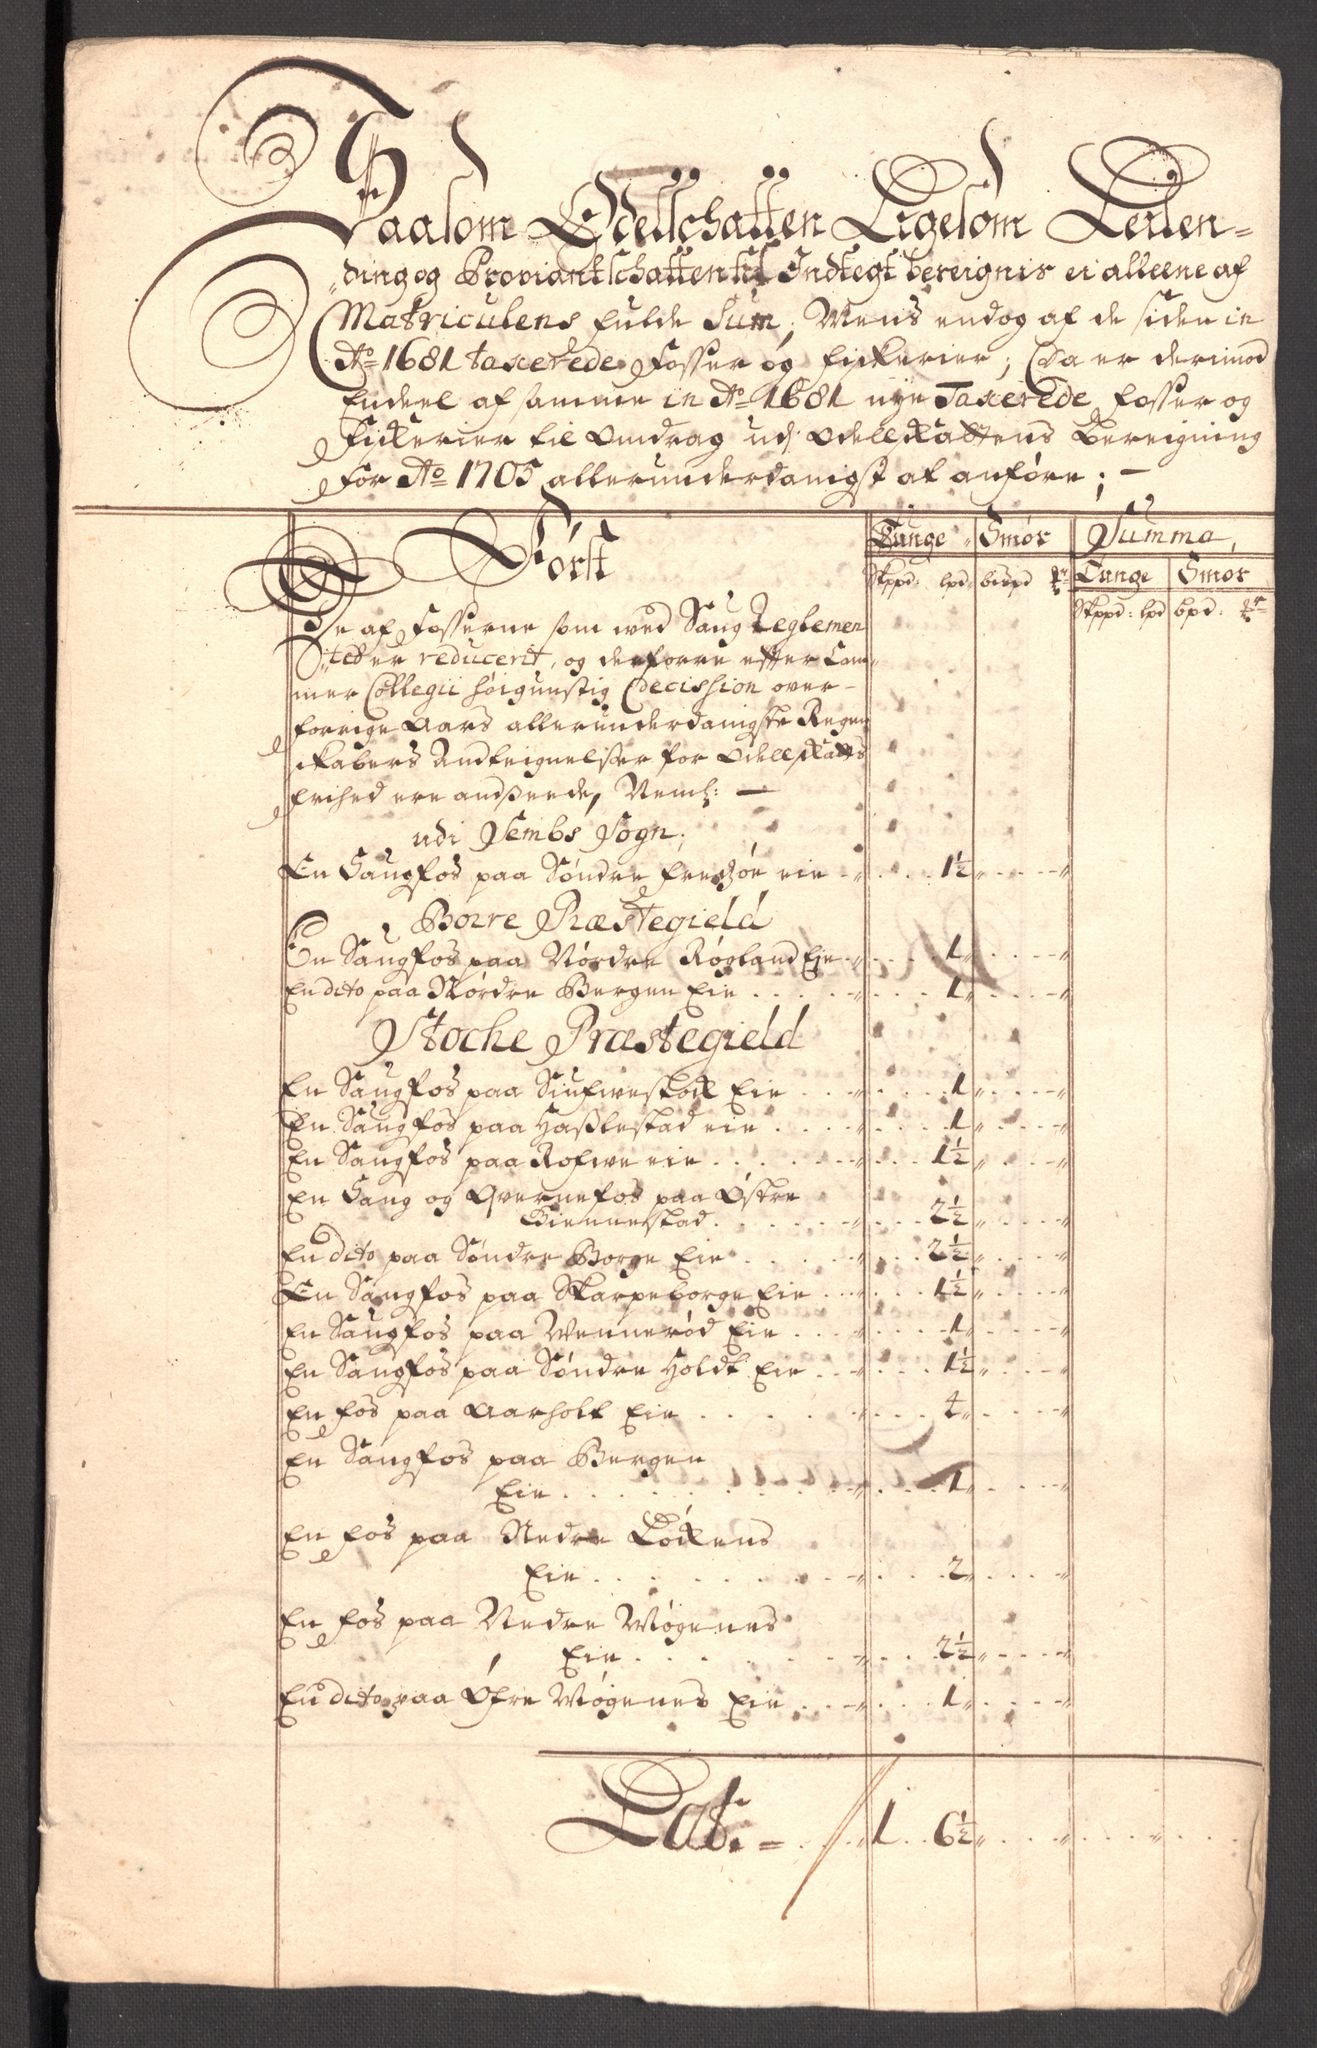 Saasom Odelschatten Ligesom Leilen-
ding og Proviantschatten til Indtegt bereignis ei alleene af
Matriculens fulde Sum, Mens endog af de siden in
Ao 1681 taxerede Fosser og fiskerier; Da er derimod
Endeel af samme in Ao 1681 nye Taxerede fosser og
Fiskerier til Omdrag udj Odellskattens Bereigning
for Ao 1705 allerunderdanigst at anføre; —
Først
Tunge Smør Summa,
Skppd: lpd: bispd Tunge Smør
Skppd: lpd bpd:
De af Fosserne som wed Saug Reglemen
ted er reducerit, og derforre efter Cam-
mer Collegii høigunstig Decission over
forrige Aars allerunderdanigste Regen
skabers Andteignelser for Odellskatts
frihed ere andseede, Neml: —
udi Sembs Sogn;
En Saugfos paa Søndre eie 1½
Borre Præstegield
En Saugfos paa Nordre Røgland Eie 1
En dito paa Nordre Bergen Eie 1
Stoche Præstegield
En Saugfos paa Eie 1
En Saugfos paa Hasslestad eie 1
En Saugfos paa Rofwe eie 1½
En Saug og Qvernefos paa Østre
Biennestad 2½
En dito paa Søndre Borge Eie 2½
En Saugfos paa Skarpeborge Eie 1½
En Saugfos paa Wennerød Eie 1
En Saugfos paa Søndre Holdt Eie 1½
En fos paa Aarholt Eie
En Saugfos paa Bergen
Eie 1
En fos paa Nedre
Eie 2
En fos paa Nedre Møgenes
Eie 2½
En dito paa Øfre Møgenes Eie 1
Lat. = 1 6½